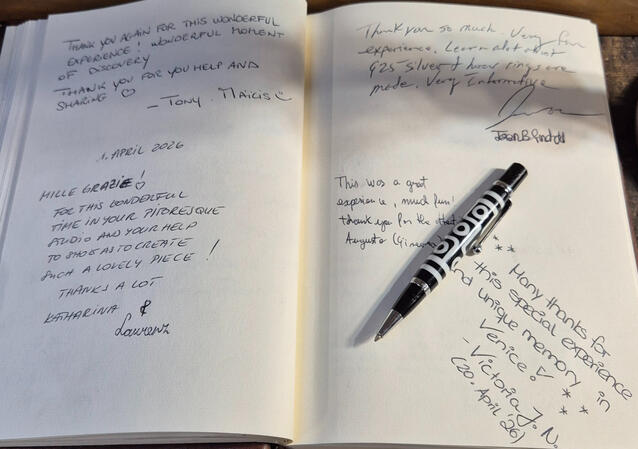 THANK YOU AGAIN FOR THIS WONDERFUL
EXPERIENCE! WONDERFUL MOMENT
OF DISCOVERY
THANK YOU FOR YOU HELP AND
SHARING ♡
– TONY.
1. APRIL 2026
MILLE GRAZIE! ♡
FOR THIS WONDERFUL
TIME IN YOUR PITORESQUE
STUDIO AND YOUR HELP
TO US TO CREATE
SUCH A LOVELY PIECE!
THANKS A LOT
KATHARINA &
Laurenz
Thank you so much. Very fun
experience. Learn alot about
925 silver & how rings are
made. Very Informative
This was a great
experience, much fun!
thank you for the
Augusto
Many thanks for
this special experience
and unique memory in
Venice! ♡
- Victoria J. N.
(20. April '26)